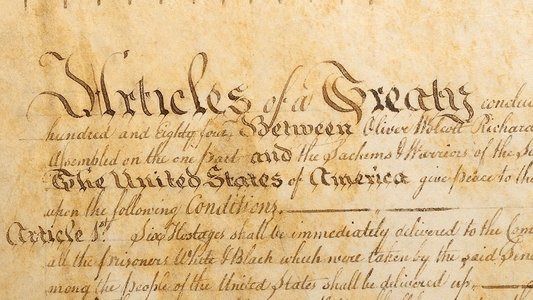 Articles of a Treaty conclu
hundred and Eighty four, Between Oliver Wolcott Richard
Assembled on the one Part and the Sachems & Warriors of the Se
The United States of America give peace to the
upon the following Conditions.
Article 1st. Six Hostages shall be immediately delivered to the Com
all the Prisoners White & Black which were taken by the said Sene
mong the People of the United States shall be delivered up.